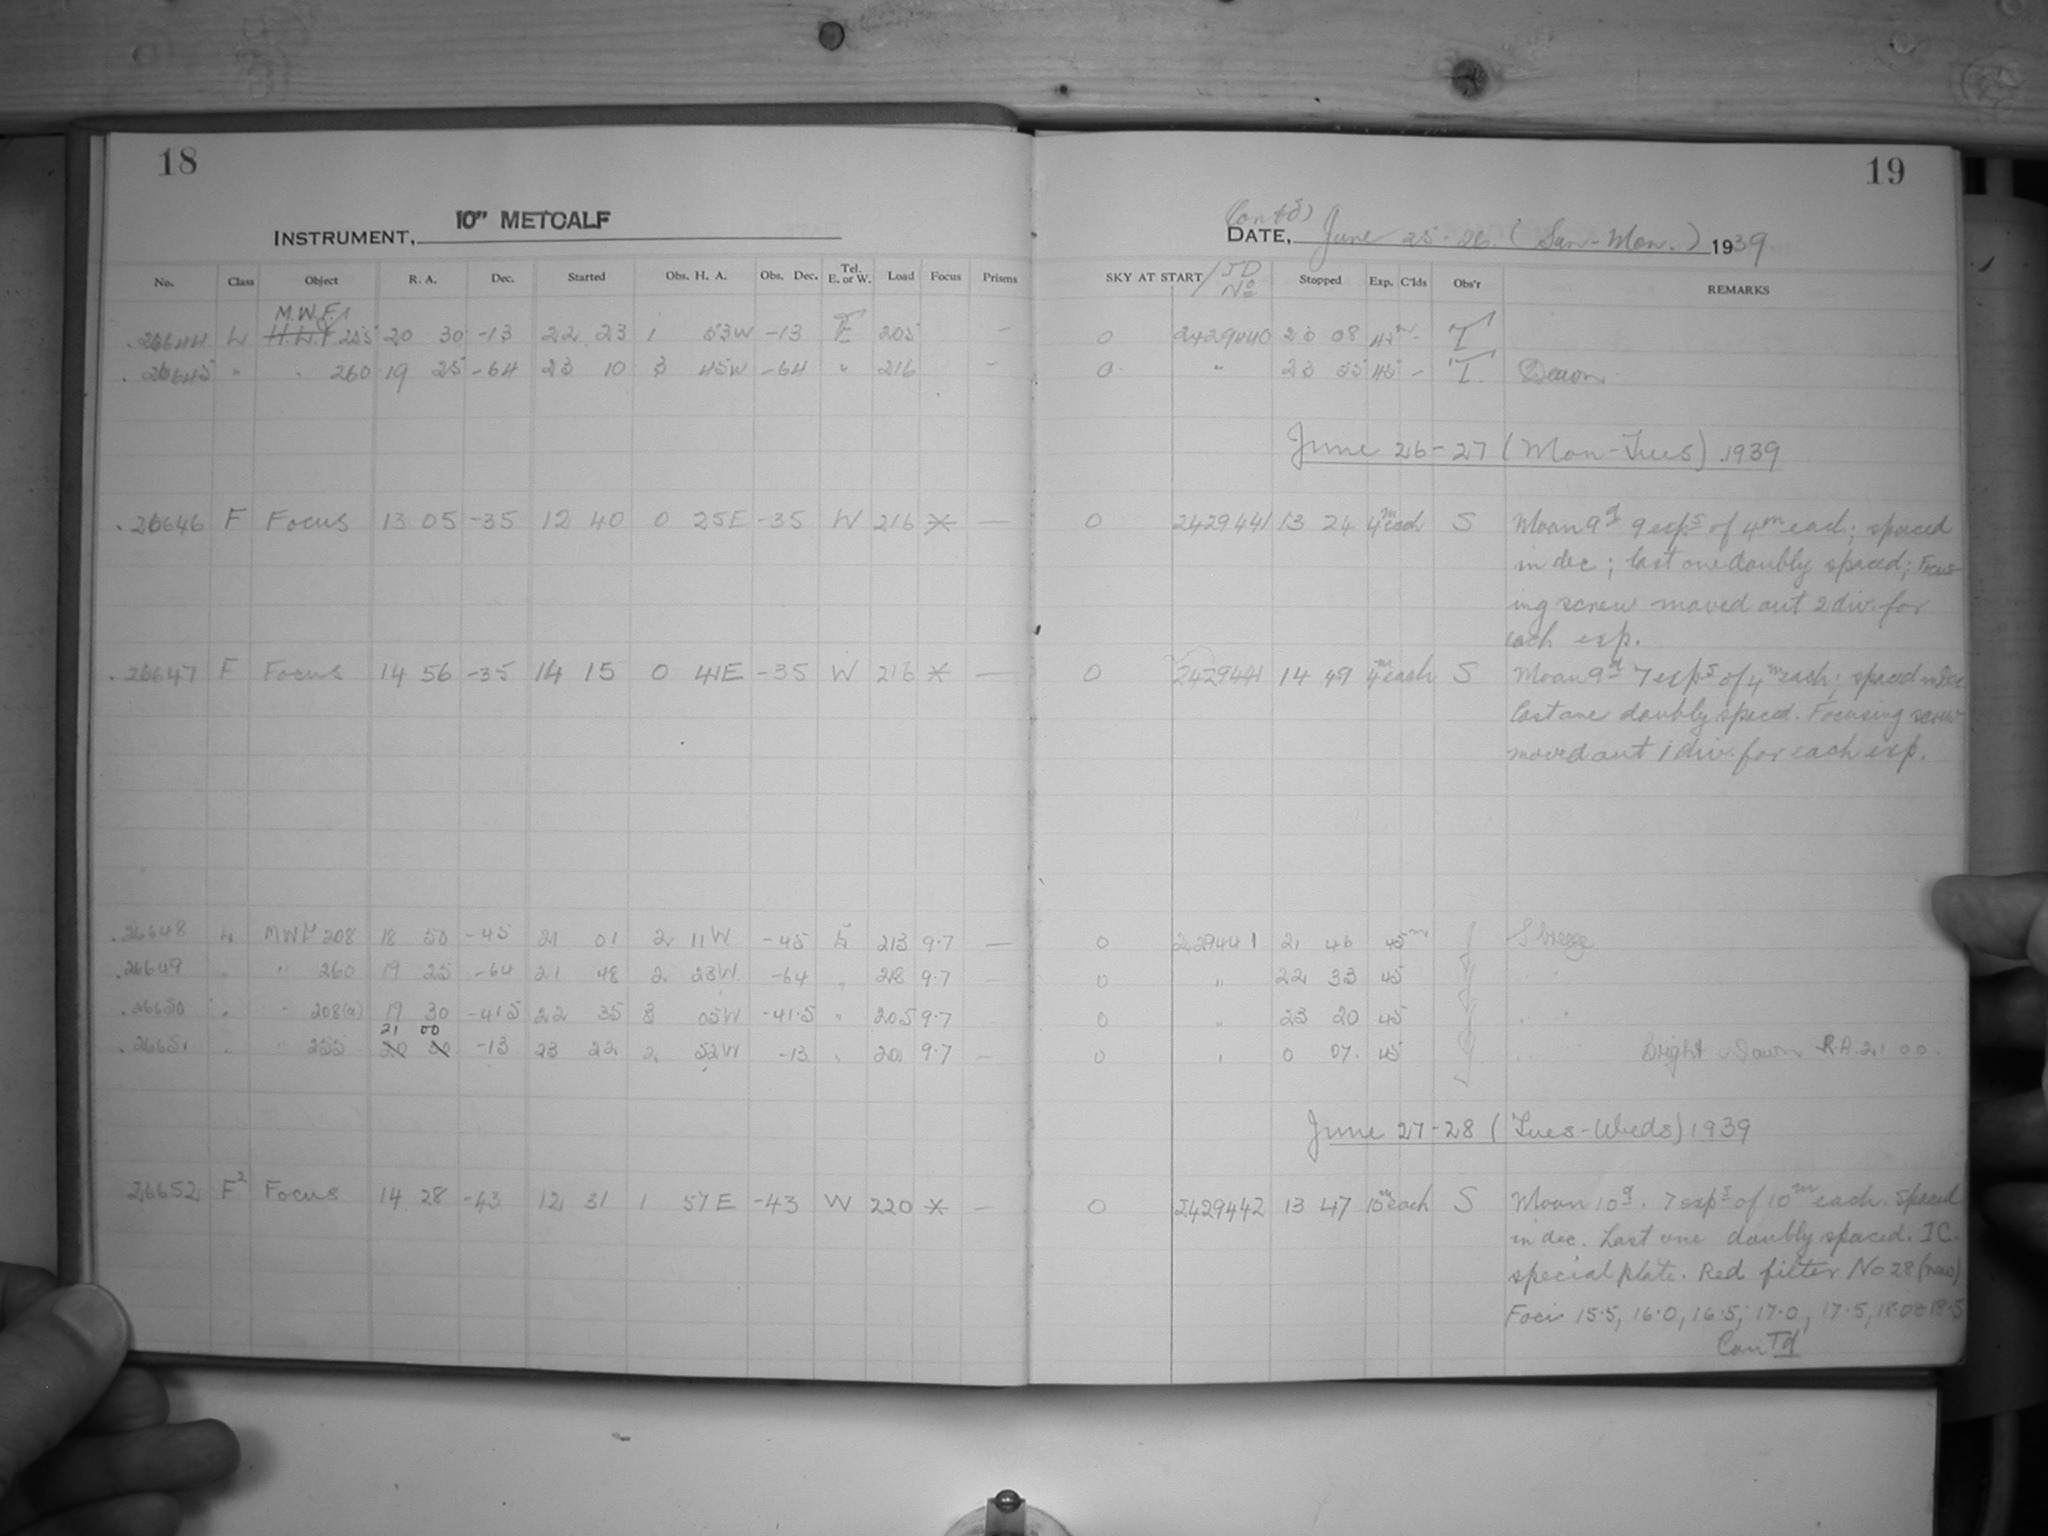 18
19
INSTRUMENT, 10" METCALF
Contd)
DATE, June 25-26. (Sun-Mon.) 1939
No. Class Object R. A. Dec. Started Obs. H. A. Obs. Dec. Tel. E. or W. Load Focus Prisms SKY AT START / JD No Stopped Exp. C'lds Obs'r REMARKS
M.W.F.
26644 L 255 20 30 -13 22 23 1 53W -13 E 205 — 0 2429440 23 08 45m - T
26645 " " 260 19 25 -64 23 10 3 45W -64 " 216 — 0 " 23 55 45 - T.
June 26-27 (Mon-Tues) 1939
26646 F Focus 13 05 -35 12 40 0 25E -35 W 216 * — 0 2429441 13 24 4m each S Moon 9d 9 exps of 4m each; spaced
in dec; last one doubly spaced; Focus-
ing screw moved out 2 div. for
each exp.
26647 F Focus 14 56 -35 14 15 0 41E -35 W 216 * — 0 2429441 14 49 4m each S Moon 9d 7 exps of 4m each; spaced in Dec
Last one doubly spaced. Focusing screw
moved out 1 div. for each exp.
26648 L MWF 208 18 50 -45 21 01 2 11W -45 E 213 9.7 — 0 2429441 21 46 45m S breeze
26649 " " 260 19 25 -64 21 48 2 23W -64 " 218 9.7 — 0 " 22 33 45 " "
26650 " " 208(a) 19 30 -41.5 22 35 3 05W -41.5 " 205 9.7 0 " 23 20 45 " "
21 00
26651 " " 255 20 30 -13 23 22 2 52W -13 " 9.7 — 0 " 0 07 45 " " Bright Dawn R.A. 21 00.
June 27-28 (Tues-Weds) 1939
26652 F2 Focus 14 28 -43 12 31 1 57E -43 W 220 * — 0 2429442 13 47 10m each S Moon 10d. 7 exps of 10m each. Spaced
in dec. Last one doubly spaced. IC
special plate. Red filter No 28 (new)
Foci 15.5, 16.0, 16.5, 17.0, 17.5, 18.0 & 18.5
ConTd